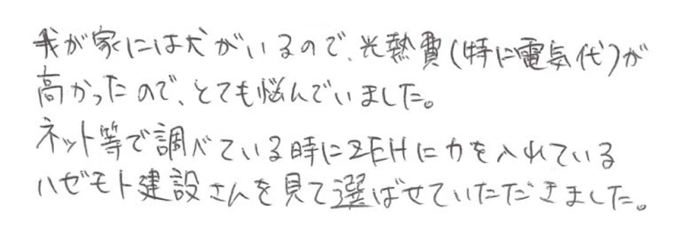 我が家には犬がいるので、光熱費(特に電気代)が
高かったので、とても悩んでいました。
ネット等で調べている時にZEHに力を入れている
ハゼモト建設さんを見て選ばせていただきました。